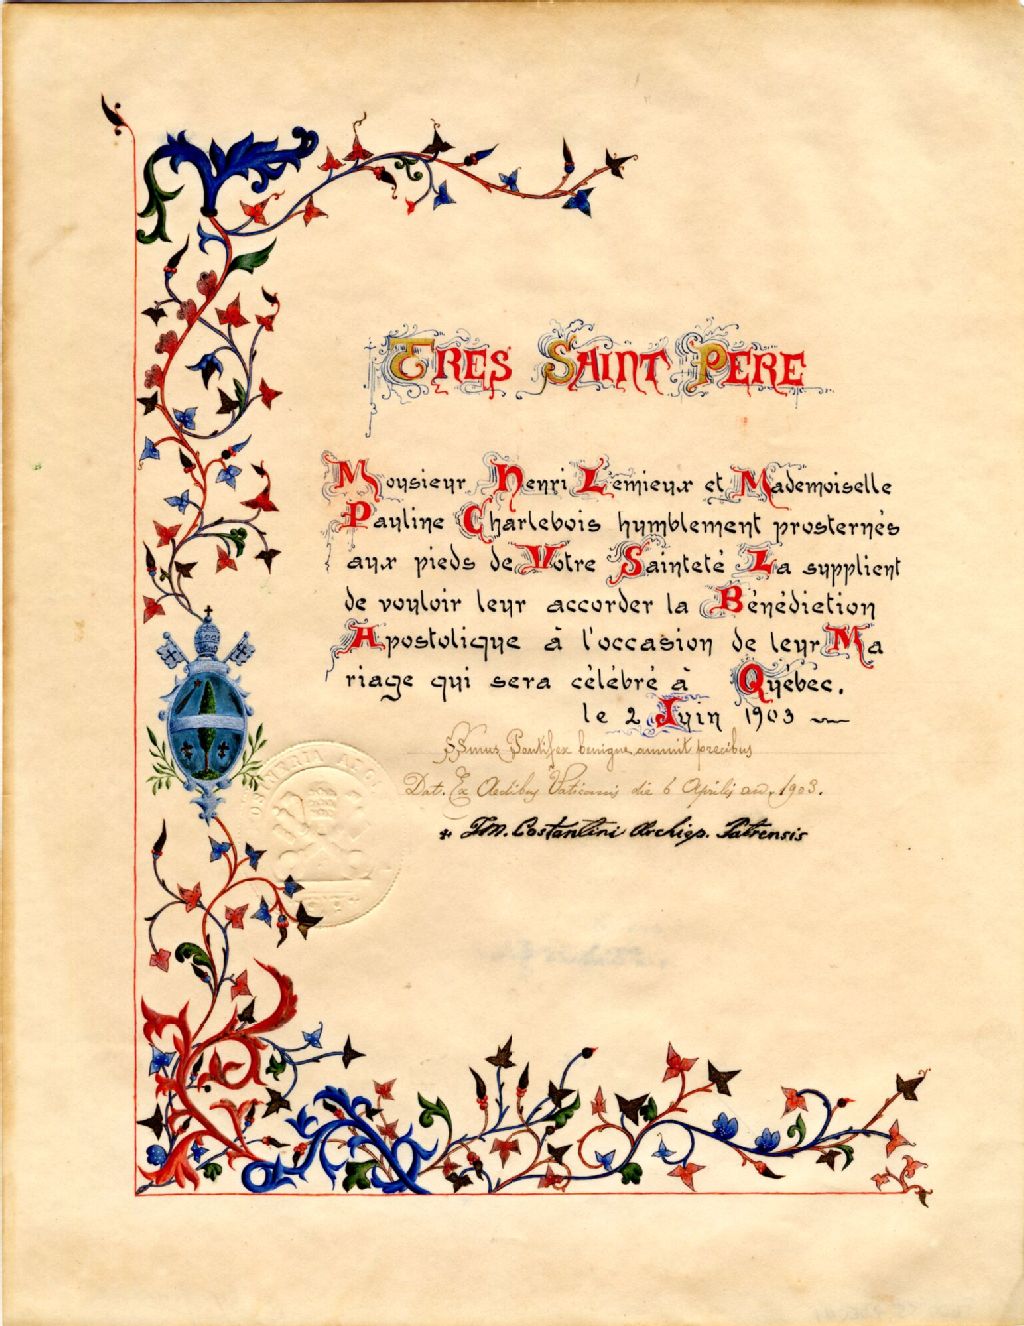 TRES SAINT PERE
Monsieur Henri Lemieux et Mademoiselle
Pauline Charlebois humblement prosternés
aux pieds de Votre Sainteté La supplient
de vouloir leur accorder la Bénédiction
Apostolique à l'occasion de leur Ma
riage qui sera célébré à Québec.
le 2 Juin 1903
SSmus Pontifex benigne annuit precibus
Dat. Ex Aedibus Vaticanis die 6 Aprilis an. 1903.
Jm. Costantini Archiep. Patrensis